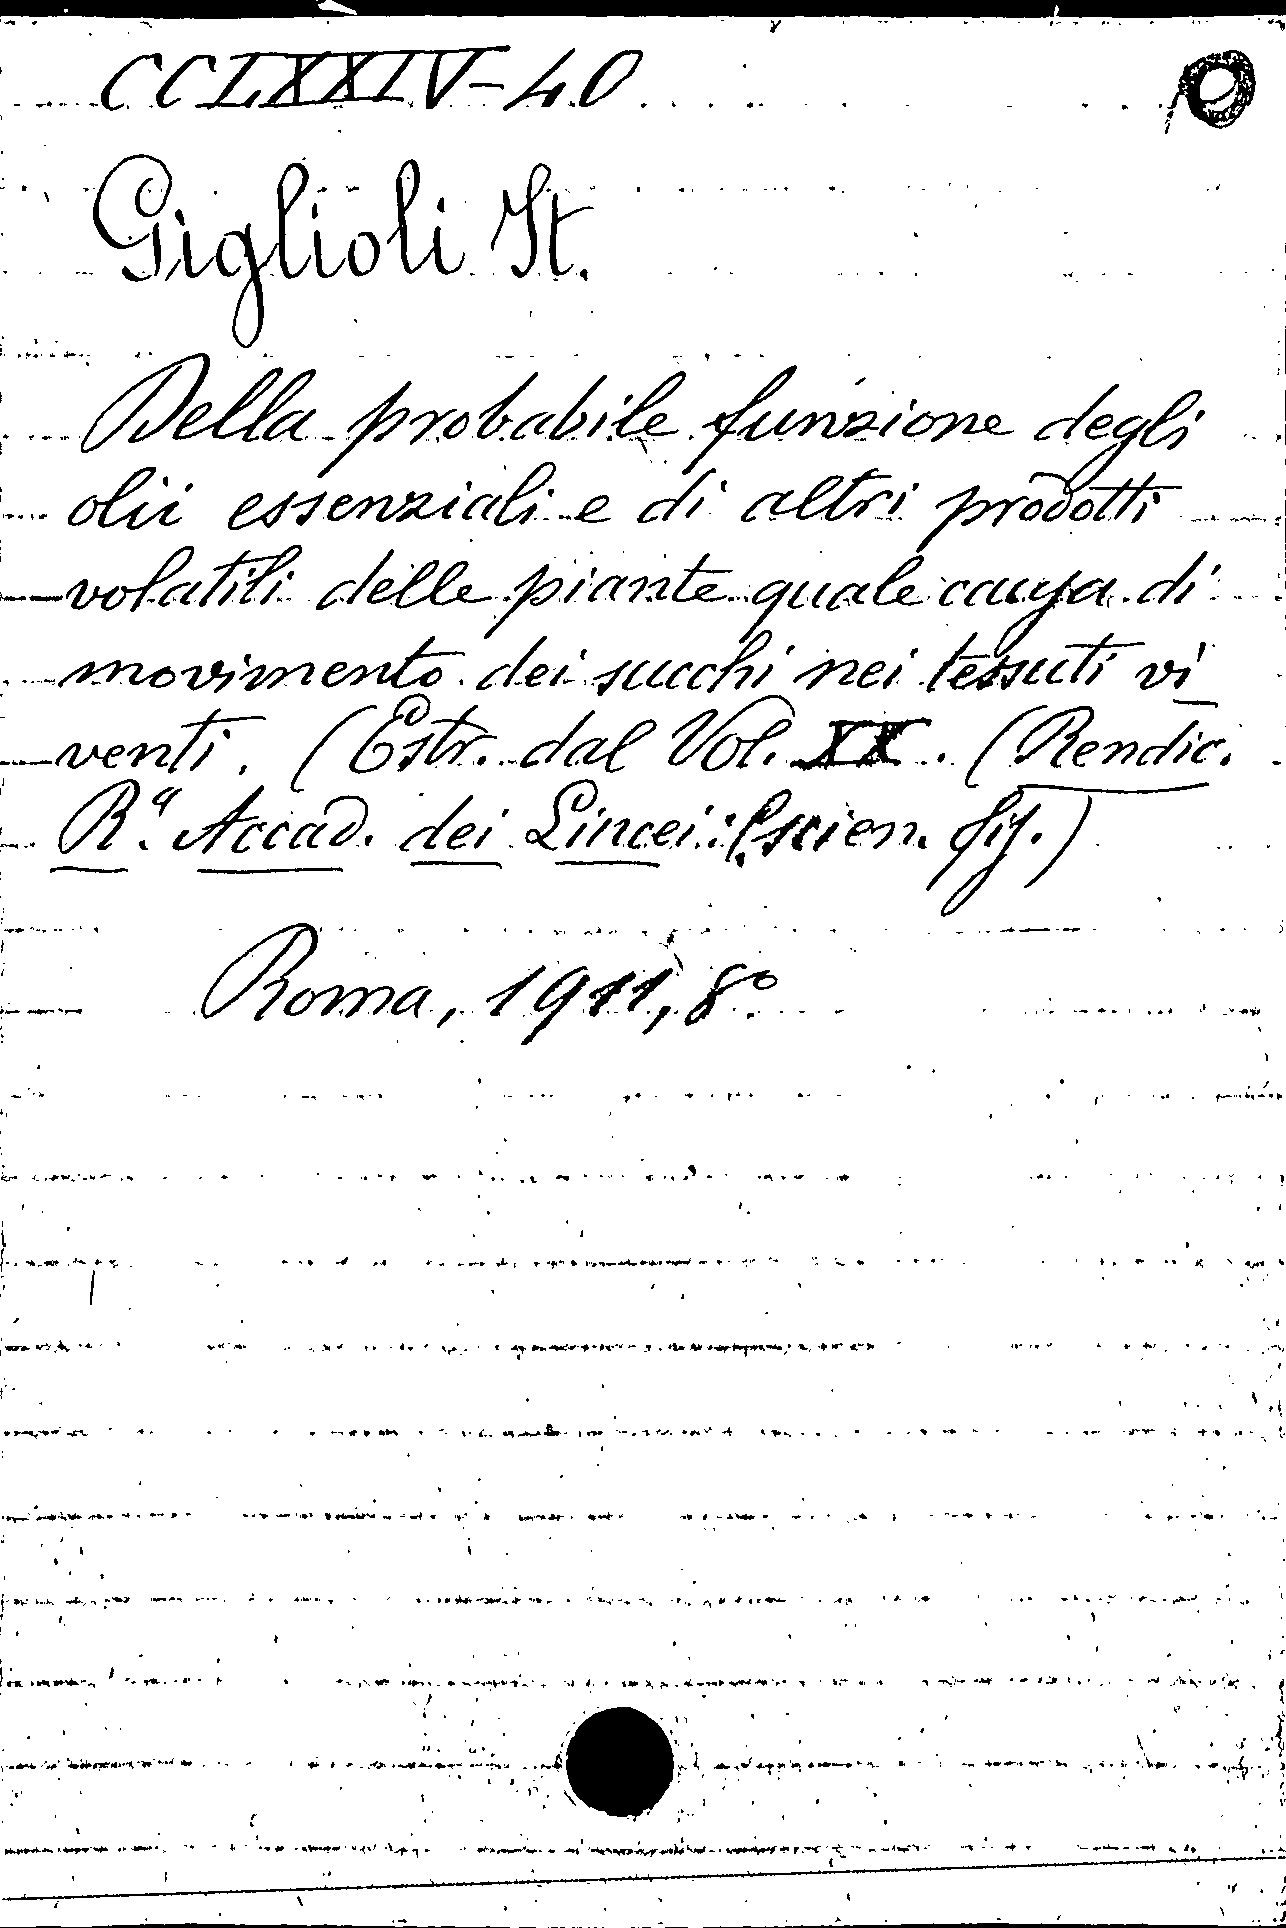 CCLXXIV-40
Giglioli It.
Della probabile funzione degli
olii essenziali e di altri prodotti
volatili delle piante quale causa di
movimento dei succhi nei tessuti vi
venti. (Estr. dal Vol. XX. (Rendic.
R.ª Accad. dei Lincei: (scien. fis.)
Roma, 1911, 8º